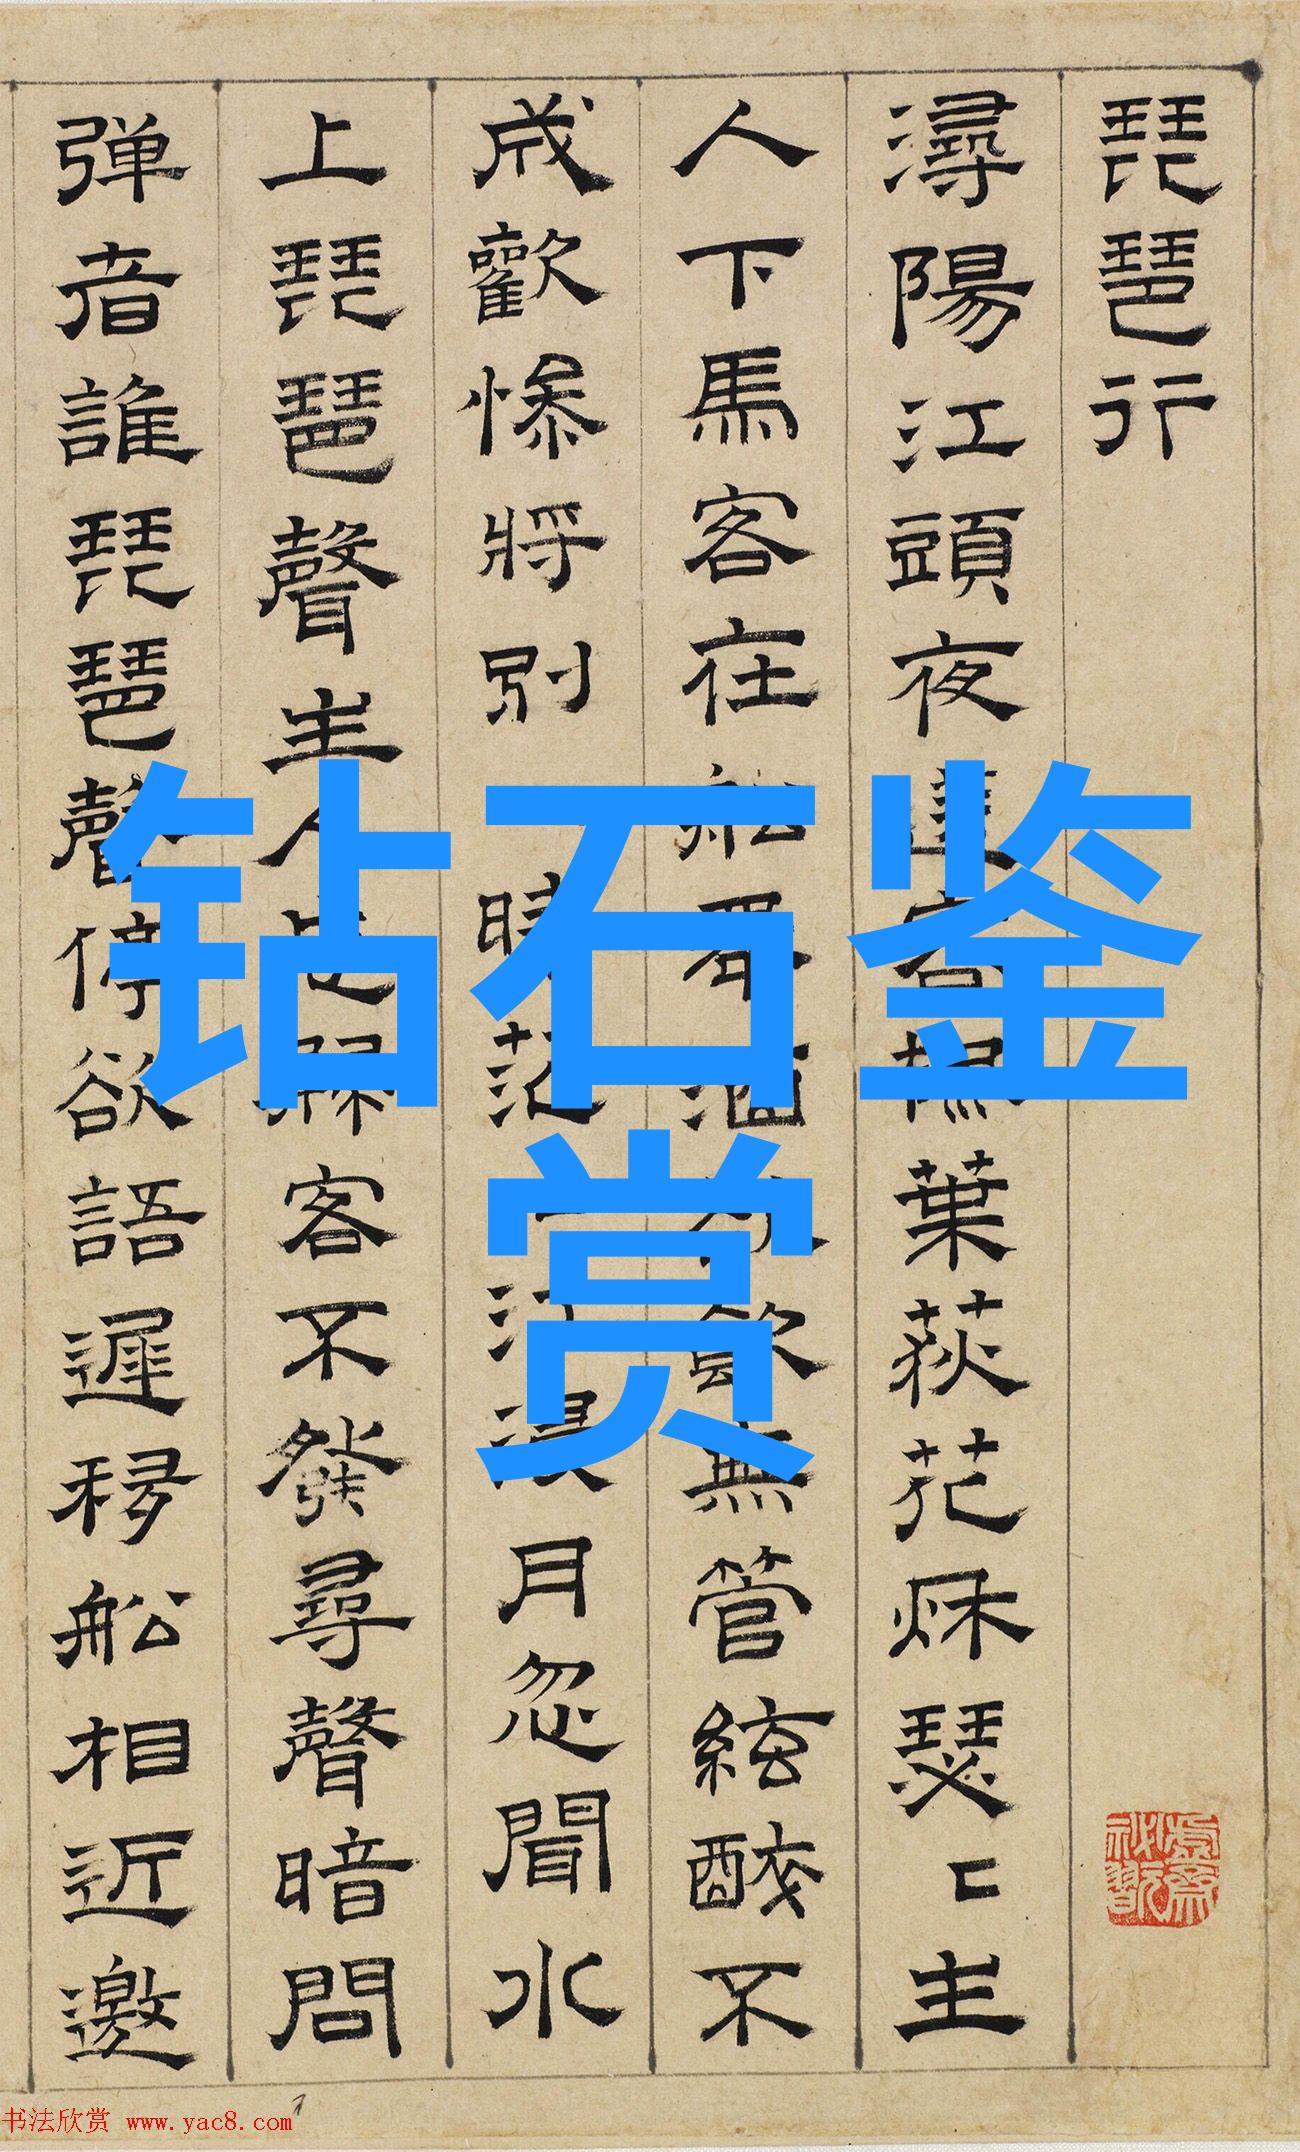 琵琶行
潯陽江頭夜送客楓葉荻花秌瑟〻主
人下馬客在船舉酒欲飲無管絃醉不
成歡慘將別時茫江浸月忽聞水
上琵琶聲主人忘歸客不發尋聲暗問
弹者誰琵琶聲停欲語遲移船相近邀
钻石鉴
赏
虛齋祕翫
书法欣赏 www.yac8.com